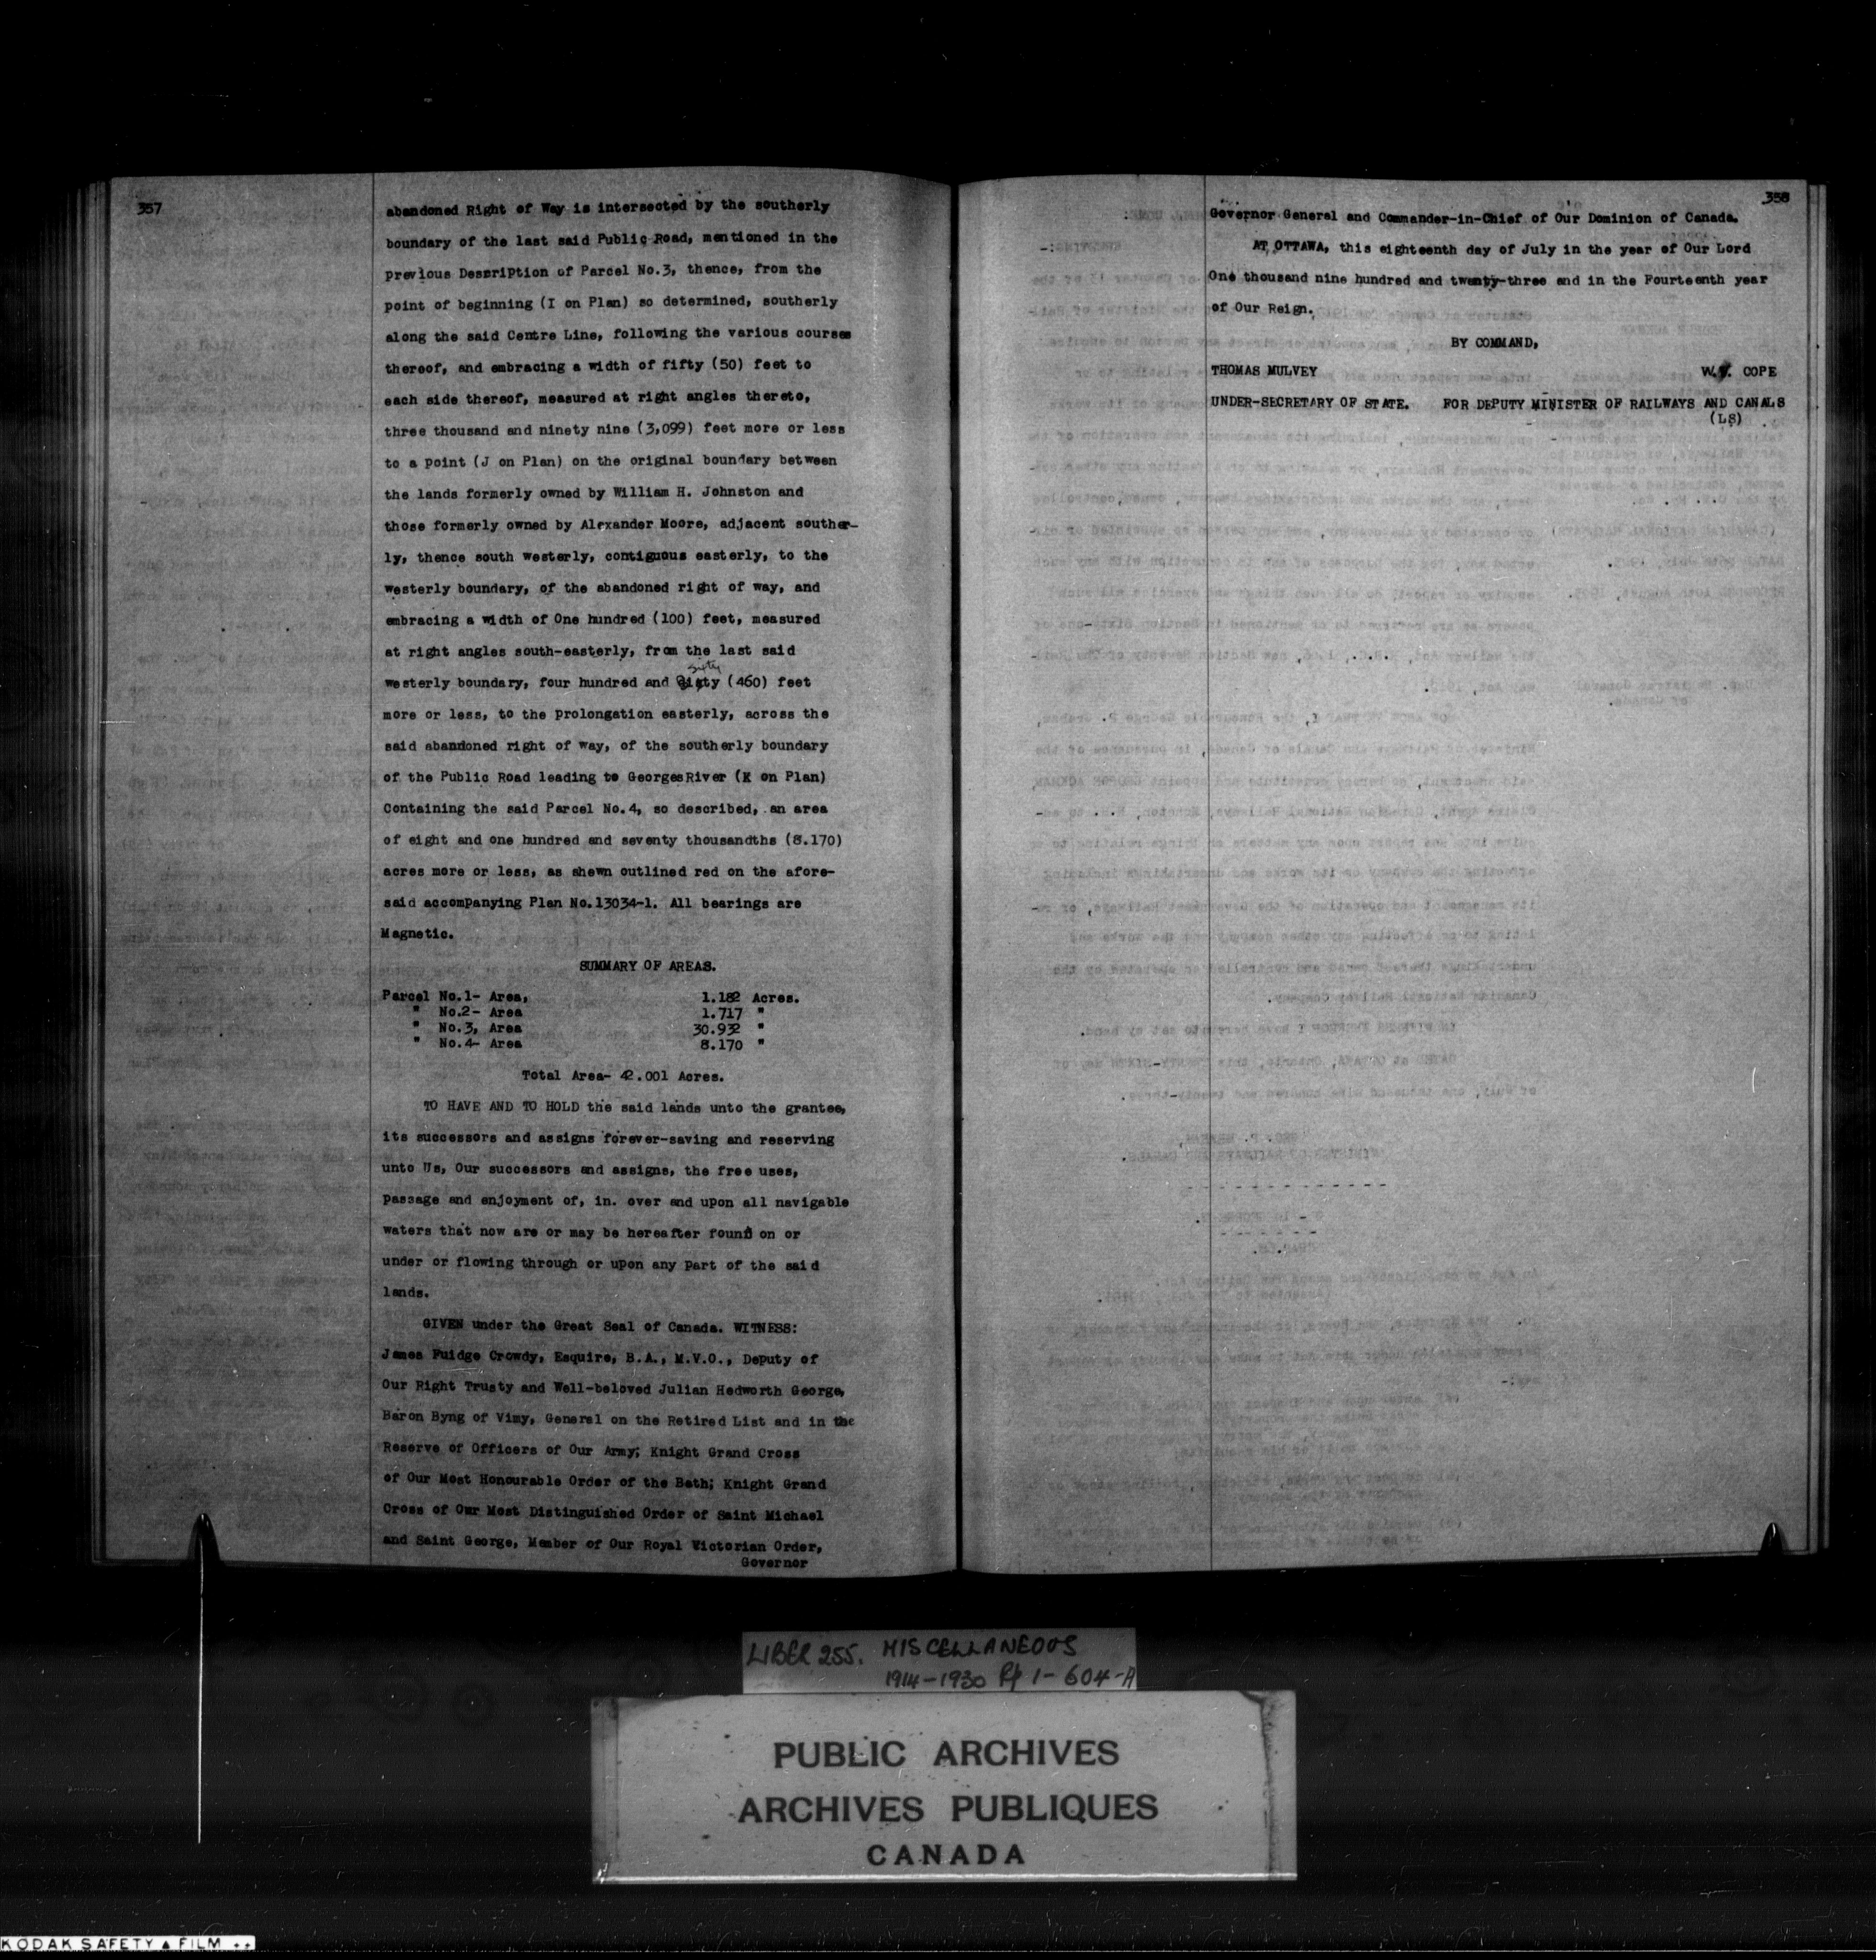 357
abandoned Right of Way is intersected by the southerly
boundary of the last said Public Road, mentioned in the
previous Description of Parcel No.3, thence, from the
point of beginning (I on Plan) so determined, southerly
along the said Centre Line, following the various courses
thereof, and embracing a width of fifty (50) feet to
each side thereof, measured at right angles thereto,
three thousand and ninety nine (3,099) feet more or less
to a point (J on Plan) on the original boundary between
the lands formerly owned by William H. Johnston and
those formerly owned by Alexander Moore, adjacent souther-
ly, thence south westerly, contiguous easterly, to the
westerly boundary, of the abandoned right of way, and
embracing a width of One hundred (100) feet, measured
at right angles south-easterly, from the last said
sixty
westerly boundary, four hundred and sixty (460) feet
more or less, to the prolongation easterly, across the
said abandoned right of way, of the southerly boundary
of the Public Road leading to GeorgesRiver (K on Plan)
Containing the said Parcel No.4, so described, an area
of eight and one hundred and seventy thousandths (8.170)
acres more or less, as shewn outlined red on the afore-
said accompanying Plan No.13034-1. All bearings are
Magnetic.
SUMMARY OF AREAS.
Parcel No.1- Area, 1.182 Acres.
" No.2- Area 1.717 "
" No.3, Area 30.932 "
" No.4- Area 8.170 "
Total Area- 42.001 Acres.
TO HAVE AND TO HOLD the said lands unto the grantee,
its successors and assigns forever-saving and reserving
unto Us, Our successors and assigns, the free uses,
passage and enjoyment of, in. over and upon all navigable
waters that now are or may be hereafter found on or
under or flowing through or upon any part of the said
lands.
GIVEN under the Great Seal of Canada. WITNESS:
James Fuidge Crowdy, Esquire, B.A., M.V.O., Deputy of
Our Right Trusty and Well-beloved Julian Hedworth George,
Baron Byng of Vimy, General on the Retired List and in the
Reserve of Officers of Our Army; Knight Grand Cross
of Our Most Honourable Order of the Bath; Knight Grand
Cross of Our Most Distinguished Order of Saint Michael
and Saint George, Member of Our Royal Victorian Order,
Governor
358
Governor General and Commander-in-Chief of Our Dominion of Canada.
AT OTTAWA, this eighteenth day of July in the year of Our Lord
One thousand nine hundred and twenty-three and in the Fourteenth year
of Our Reign.
BY COMMAND,
THOMAS MULVEY W. COPE
UNDER-SECRETARY OF STATE. FOR DEPUTY MINISTER OF RAILWAYS AND CANALS
(LS)
LIBER 255. MISCELLANEOUS
1914-1930 Pp 1-604-A
PUBLIC ARCHIVES
ARCHIVES PUBLIQUES
CANADA
KODAK SAFETY FILM